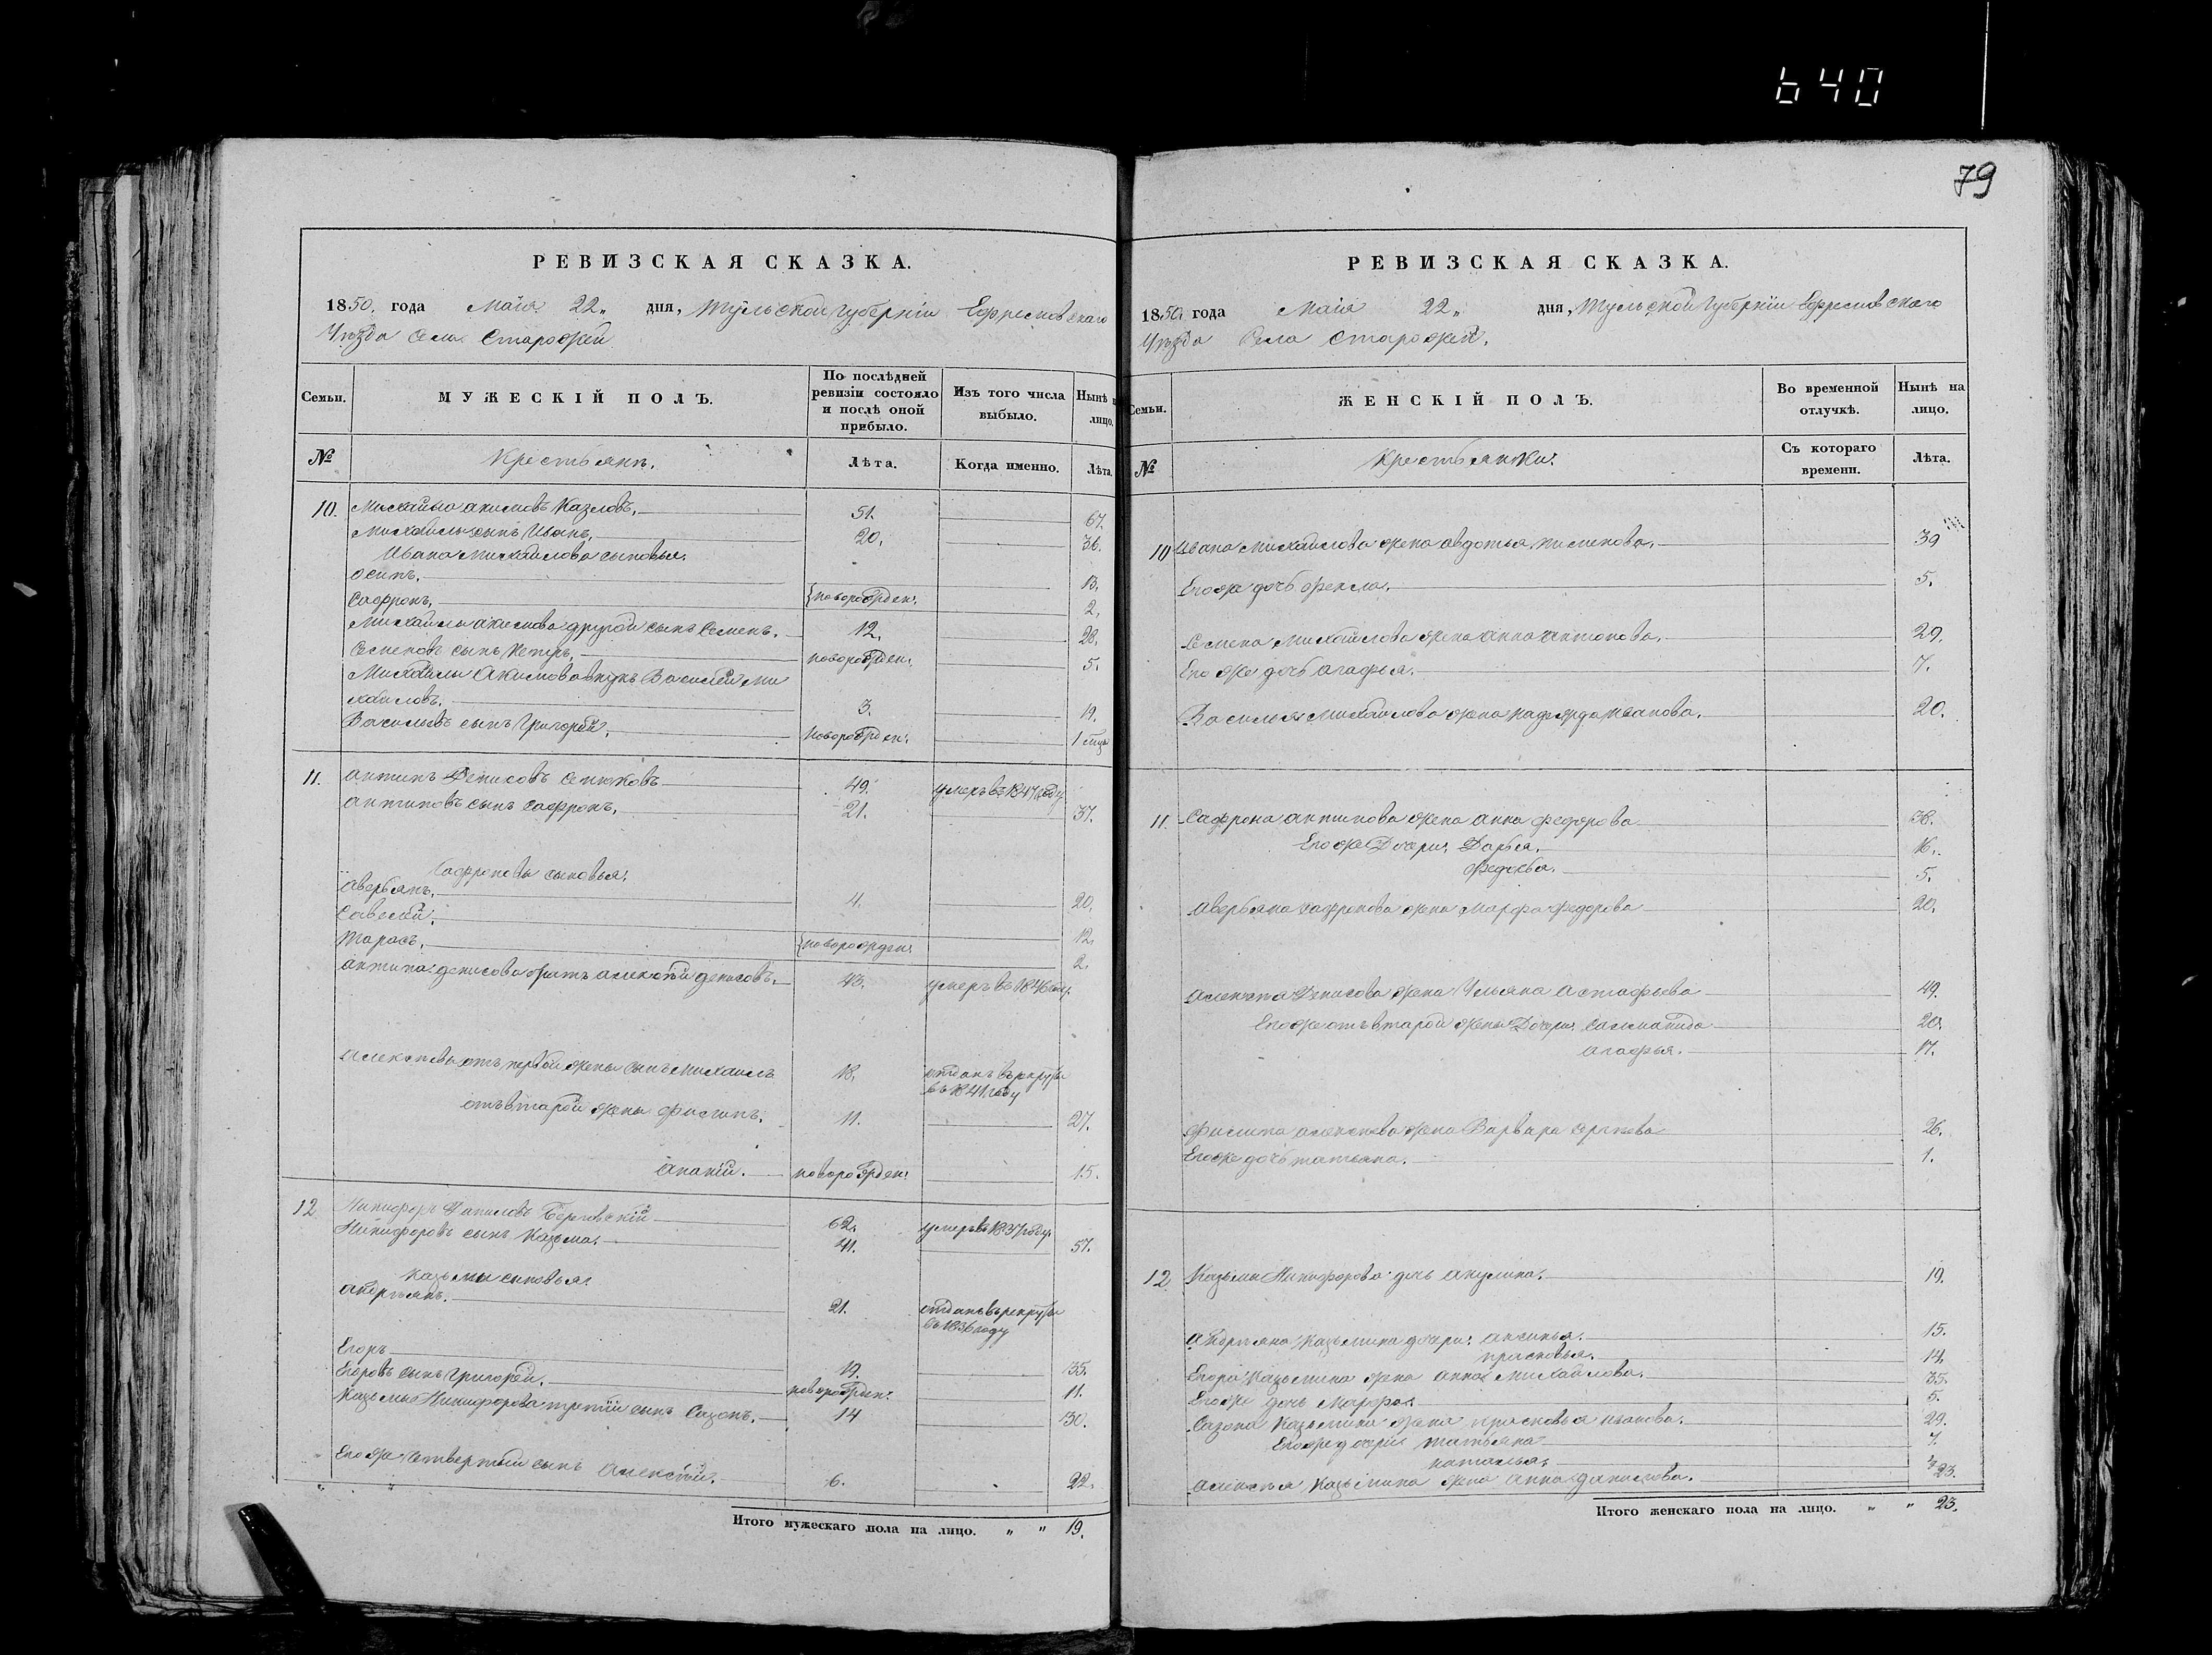 640
79
РЕВИЗСКАЯ СКАЗКА.
1850. года Маія 22„ дня, Тульской Губерніи Ефремовскаго
Уѣзда Села Старожей
Семьи.
МУЖЕСКІЙ ПОЛЪ.
По послѣдней ревизіи состояло и послѣ оной прибыло.
Изъ того числа выбыло.
Нынѣ лицо.
№
Крестьянъ.
Лѣта.
Когда именно.
Лѣта.
10. Михайло Акимовъ Казловъ. 51. 67.
Михайлы сынъ Иванъ. 20. 36.
Ивана Михайлова сыновья.
Осипъ. 13.
Сафронъ. новорожден. 2.
Михайлы Акимова другой сынъ Семенъ. 12. 28.
Семеновъ сынъ Петръ. новорожден. 5.
Михайлы Акимова внукъ Василей Ми
хайловъ. 3. 19.
Васильевъ сынъ Григорей. новорожден. 1 мца
11. Антипъ Денисовъ 49. умеръ в 1847 году
Антиповъ сынъ Сафронъ. 21. 37.
Сафроновы сыновья.
Аверьянъ. 4. 20.
Савелий. 12.
Тарасъ. новорожден. 2.
Антипа Денисова братъ Алексѣй Денисовъ. 43. умеръ в 1846 году.
Алексѣевы отъ первой жены сынъ Михаилъ 18. отданъ в рекруты
в 1841 году
отъ второй жены Филипъ. 11. 27.
Ананій. новорожден. 15.
12. Никифоръ Даниловъ 62. умеръ в 1837 году.
Никифоровъ сынъ Казьма. 41. 57.
Казьмы сыновья:
Андреянъ. 21. отданъ в рекруты
в 1836 году
Егоръ 19. 35.
Егоровъ сынъ Григорей. новорожден. 11.
Казьмы Никифорова третій сынъ Сазонъ. 14 30.
Его же четвертый сынъ Алексѣй. 6. 22.
Итого мужескаго пола на лицо. „ „ 19.
РЕВИЗСКАЯ СКАЗКА.
1850. года Маія 22„ дня, Тульской Губерніи Ефремовскаго
Уѣзда Села Старожей.
Семьи.
ЖЕНСКІЙ ПОЛЪ.
Во временной отлучкѣ.
Нынѣ на лицо.
№
Крестьянки.
Съ котораго времени.
Лѣта.
10 Ивана Михайлова жена Авдотья Пименова. 39
Его же дочь Фекла. 5.
Семена Михайлова жена Анна Антонова. 29.
Его же дочь Агафья. 7.
Василья Михайлова жена Надежда Иванова. 20.
11. Сафрона Антипова жена Анна Федорова 38.
Его же Дочери: Дарья. 16.
Федосья. 5.
Аверьяна Сафронова жена Марфа Федорова 20.
Алексѣя Денисова жена Ульяна Астафьева 49.
Его же отъ второй жены Дочери: 20.
Агафья. 17.
Филипа Алексѣева жена Варвара Сергѣева 26.
Его же дочь Татьяна. 1.
12. Казьмы Никифорова дочь Акулина. 19.
Андреяна Казьмина дочери: Аксинья. 15.
Прасковья. 14.
Егора Казьмина жена Анна Михайлова. 35.
Его же дочь Марфа. 5.
Сазона Казьмина жена Прасковья Иванова. 29.
Его же дочери Татьяна 7.
Наталья.
Алексѣя Казьмина жена Анна Данилова. 23.
Итого женскаго пола на лицо. „ „ 23.